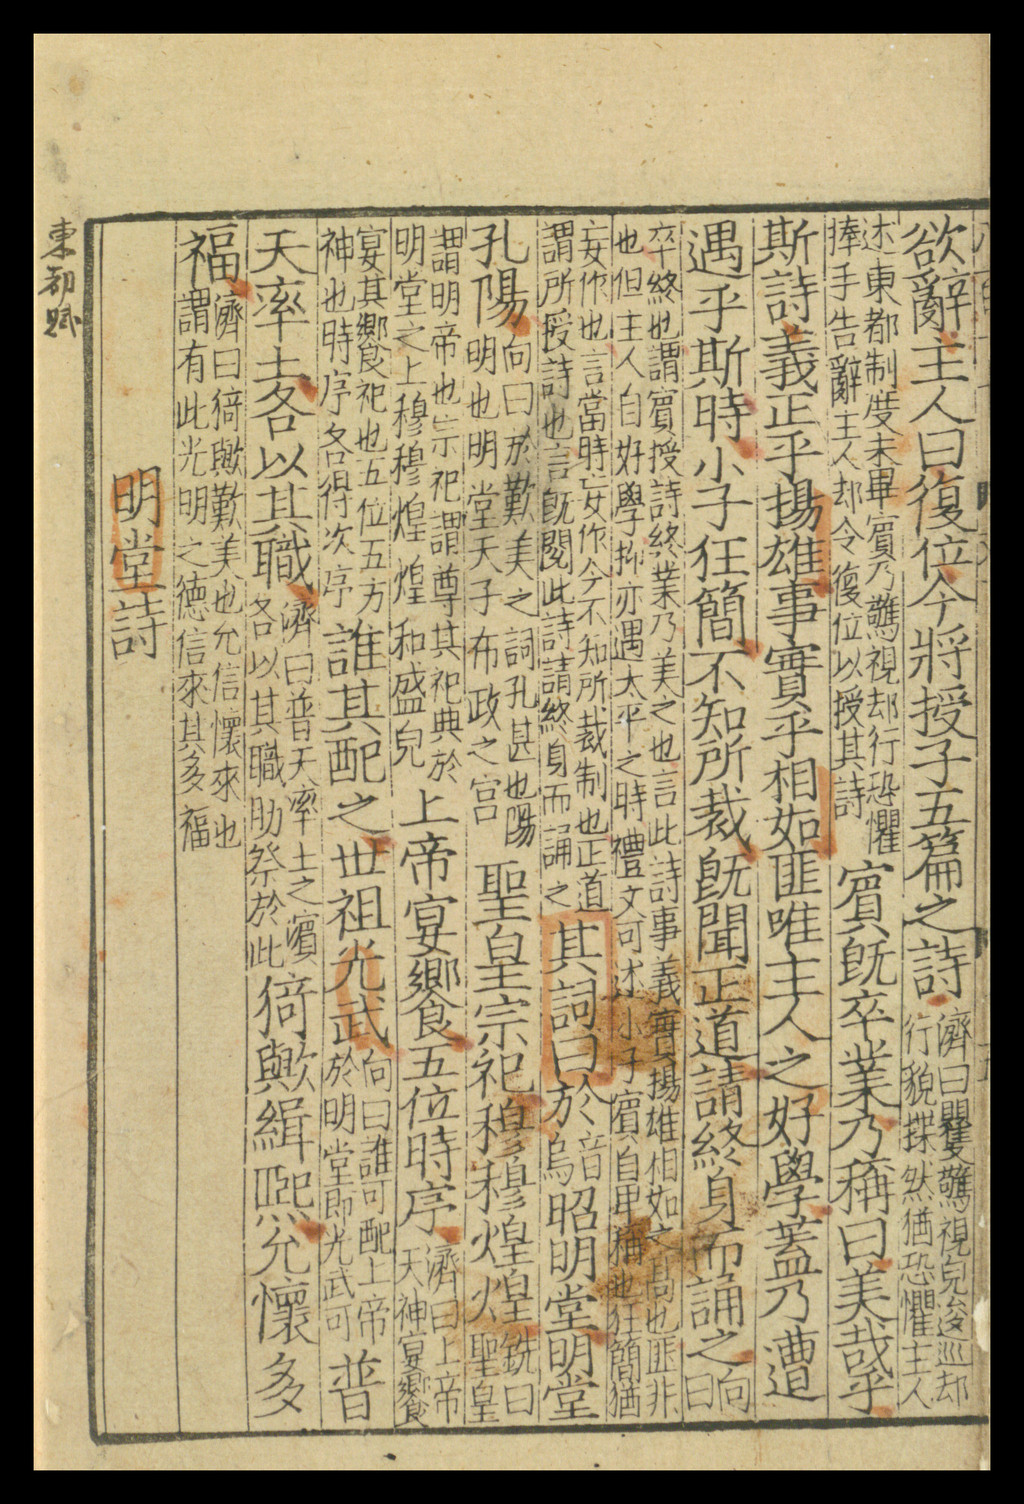 欲辭主人曰復位今將授子五篇之詩濟曰矍驚視皃逡巡却行貌揲然猶恐懼主人
述東都制度未畢賓乃驚視却行恐懼捧手告辭主人却令復位以授其詩賓旣卒業乃稱曰美哉乎
斯詩義正乎揚雄事實乎相如匪唯主人之好學蓋乃遭
遇乎斯時小子狂簡不知所裁旣聞正道請終身而誦之向曰
卒終也謂賓授詩終業乃美之也言此詩事義實揚雄相如之也匪非也但主人自好學抑亦遇太平之時禮文可述小子賓自卑稱也狂簡猶
妄作也言當時亡妄作今不知所裁制也正道謂所授詩也言旣閱此詩請終身而誦之其詞曰於音烏昭明堂明堂
孔陽向曰於歎美之詞孔甚也陽明也明堂天子布政之宮聖皇宗祀穆穆煌煌銑曰聖皇
謂明帝也宗祀謂尊其祀典於明堂之上穆穆煌煌和盛皃上帝宴饗五位時序濟曰上帝天神宴饗
宴其饗祀也五位五方神也時序各得次序誰其配之丗祖光武向曰誰可配上帝於明堂即光武可普
天率土各以其職濟曰普天率土之濱各以其職助祭於此猗歟緝熙允懷多
福濟曰猗歟歎美也允信懷來也謂有此光明之德信來其多福
明堂詩
東都賦